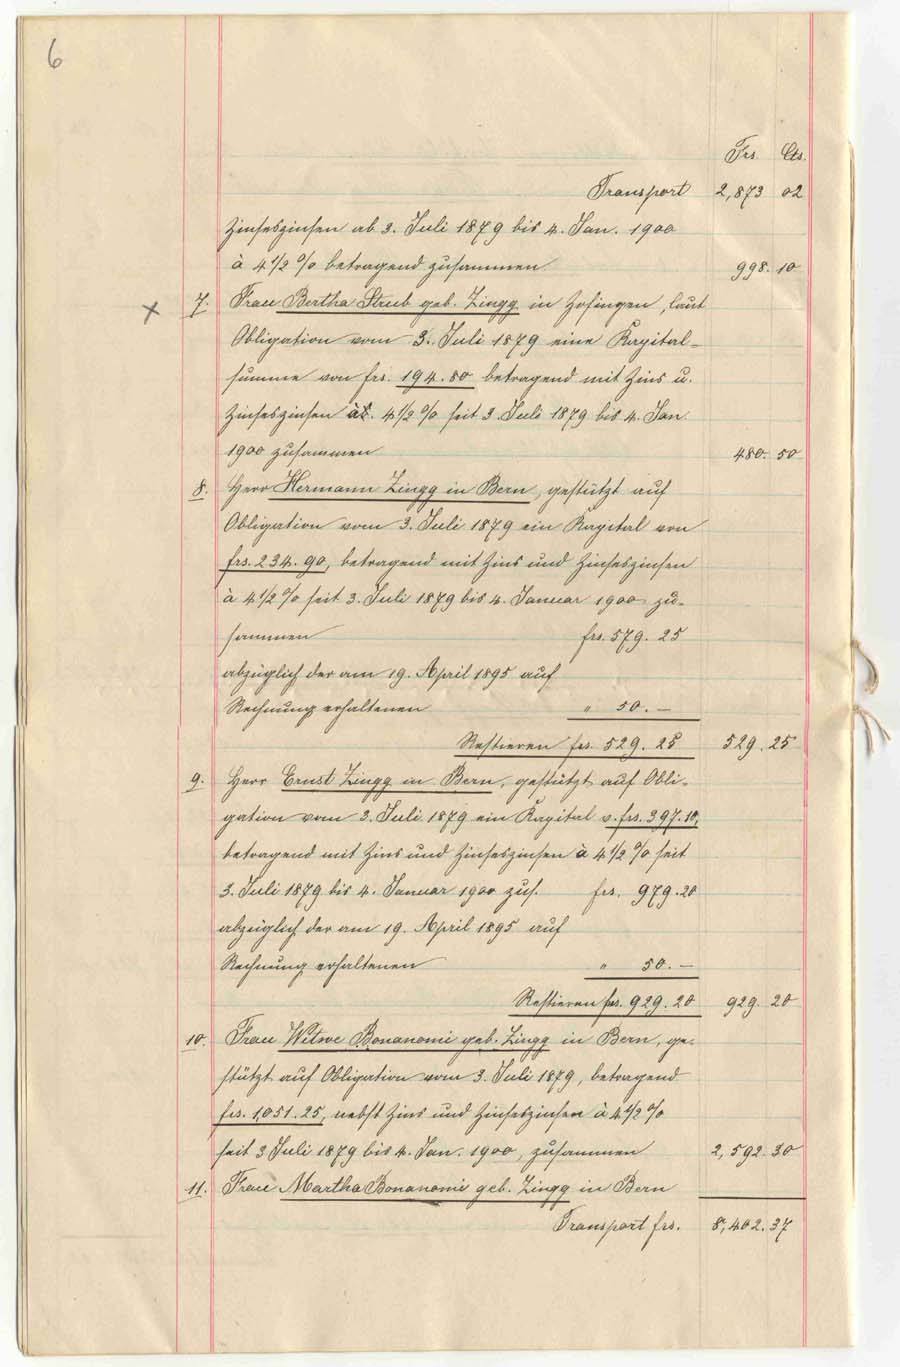 6
Frs. Cts.
Transport 2,873 02
Zinseszinsen ab 3. Juli 1879 bis 4. Jan. 1900
à 4 1/2 % betragend zusammen 998. 10
x 7. Frau Bertha Streb geb. Zingg in Zofingen, laut
Obligation vom 3. Juli 1879 eine Kapital-
summe von frs. 194.80 betragend mit Zins u.
Zinseszinsen à 4 1/2 % seit 3. Juli 1879 bis 4. Jan.
1900 zusammen 480. 50
8. Herr Hermann Zingg in Bern, gestützt auf
Obligation vom 3. Juli 1879 ein Kapital von
frs. 234. 90, betragend mit Zins und Zinseszinsen
à 4 1/2 % seit 3. Juli 1879 bis 4. Januar 1900 zu-
sammen frs. 579. 25
abzüglich der am 19. April 1895 auf
Rechnung erhaltenen " 50. —
Restieren frs. 529. 25 529. 25
9. Herr Ernst Zingg in Bern, gestützt auf Obli-
gation vom 3. Juli 1879 ein Kapital v. frs. 397.10,
betragend mit Zins und Zinseszinsen à 4 1/2 % seit
3. Juli 1879 bis 4. Januar 1900 zus. frs. 979.20
abzüglich der am 19. April 1895 auf
Rechnung erhaltenen " 50. —
Restieren frs. 929. 20 929. 20
10. Frau Witwe Bonanomi geb. Zingg in Bern, ge-
stützt auf Obligation vom 3. Juli 1879, betragend
frs. 1,051. 25, nebst Zins und Zinseszinsen à 4 1/2 %
seit 3 Juli 1879 bis 4. Jan. 1900, zusammen 2,592. 30
11. Frau Martha Bonanomi geb. Zingg in Bern
Transport frs. 8,402. 37